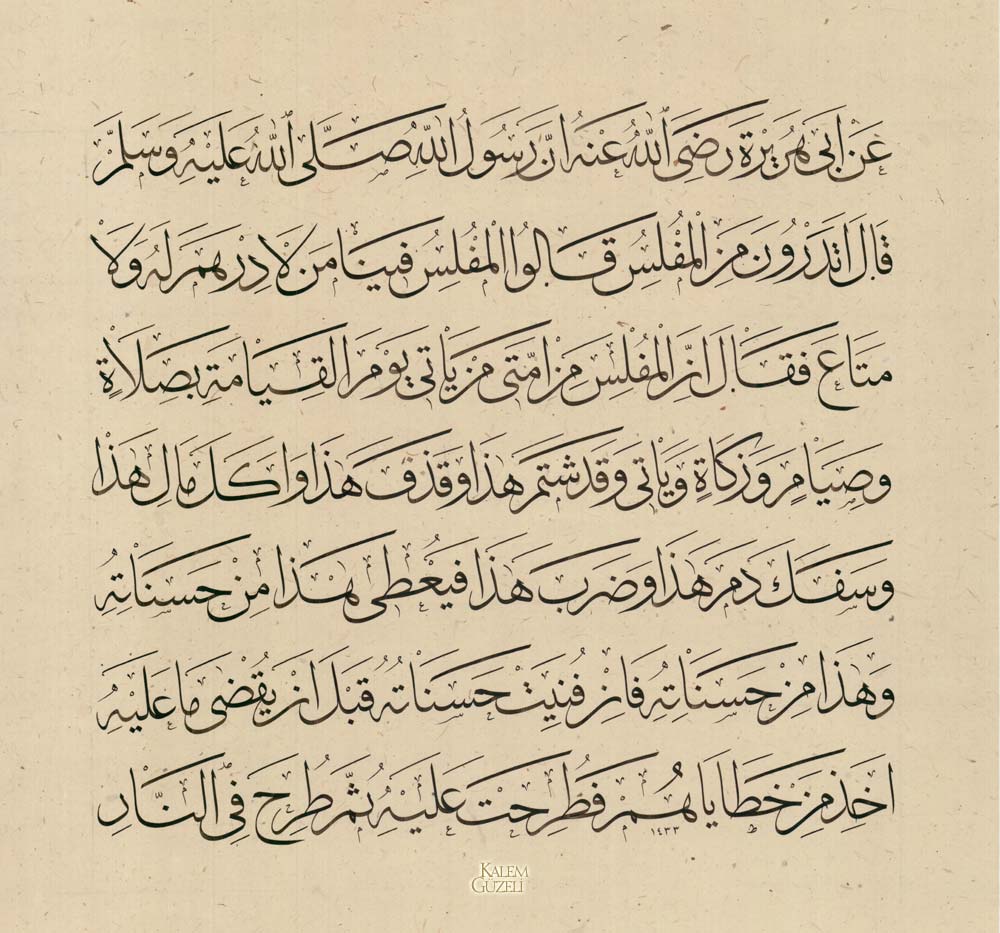 عَنْ اَبِى هُرَيْرَةَ رَضِىَ اللّٰهُ عَنْهُ اَنَّ رَسُولَ اللّٰهِ صَلَّى اللّٰهُ عَلَيْهِ وَسَلَّمَ
قَالَ اَتَدْرُونَ مَنِ الْمُفْلِسُ قَالُوا الْمُفْلِسُ فِينَا مَنْ لَا دِرْهَمَ لَهُ وَلَا
مَتَاعَ فَقَالَ اِنَّ الْمُفْلِسَ مِنْ اُمَّتِى مَنْ يَأْتِى يَوْمَ الْقِيَامَةِ بِصَلَاةٍ
وَصِيَامٍ وَزَكَاةٍ وَيَأْتِى وَقَدْ شَتَمَ هٰذَا وَقَذَفَ هٰذَا وَاَكَلَ مَالَ هٰذَا
وَسَفَكَ دَمَ هٰذَا وَضَرَبَ هٰذَا فَيُعْطٰى هٰذَا مِنْ حَسَنَاتِهِ
وَهٰذَا مِنْ حَسَنَاتِهِ فَاِنْ فَنِيَتْ حَسَنَاتُهُ قَبْلَ اَنْ يُقْضٰى مَا عَلَيْهِ
اُخِذَ مِنْ خَطَايَاهُمْ فَطُرِحَتْ عَلَيْهِ ثُمَّ طُرِحَ فِى النَّارِ
١٤٣٣
KALEM
GÜZELİ